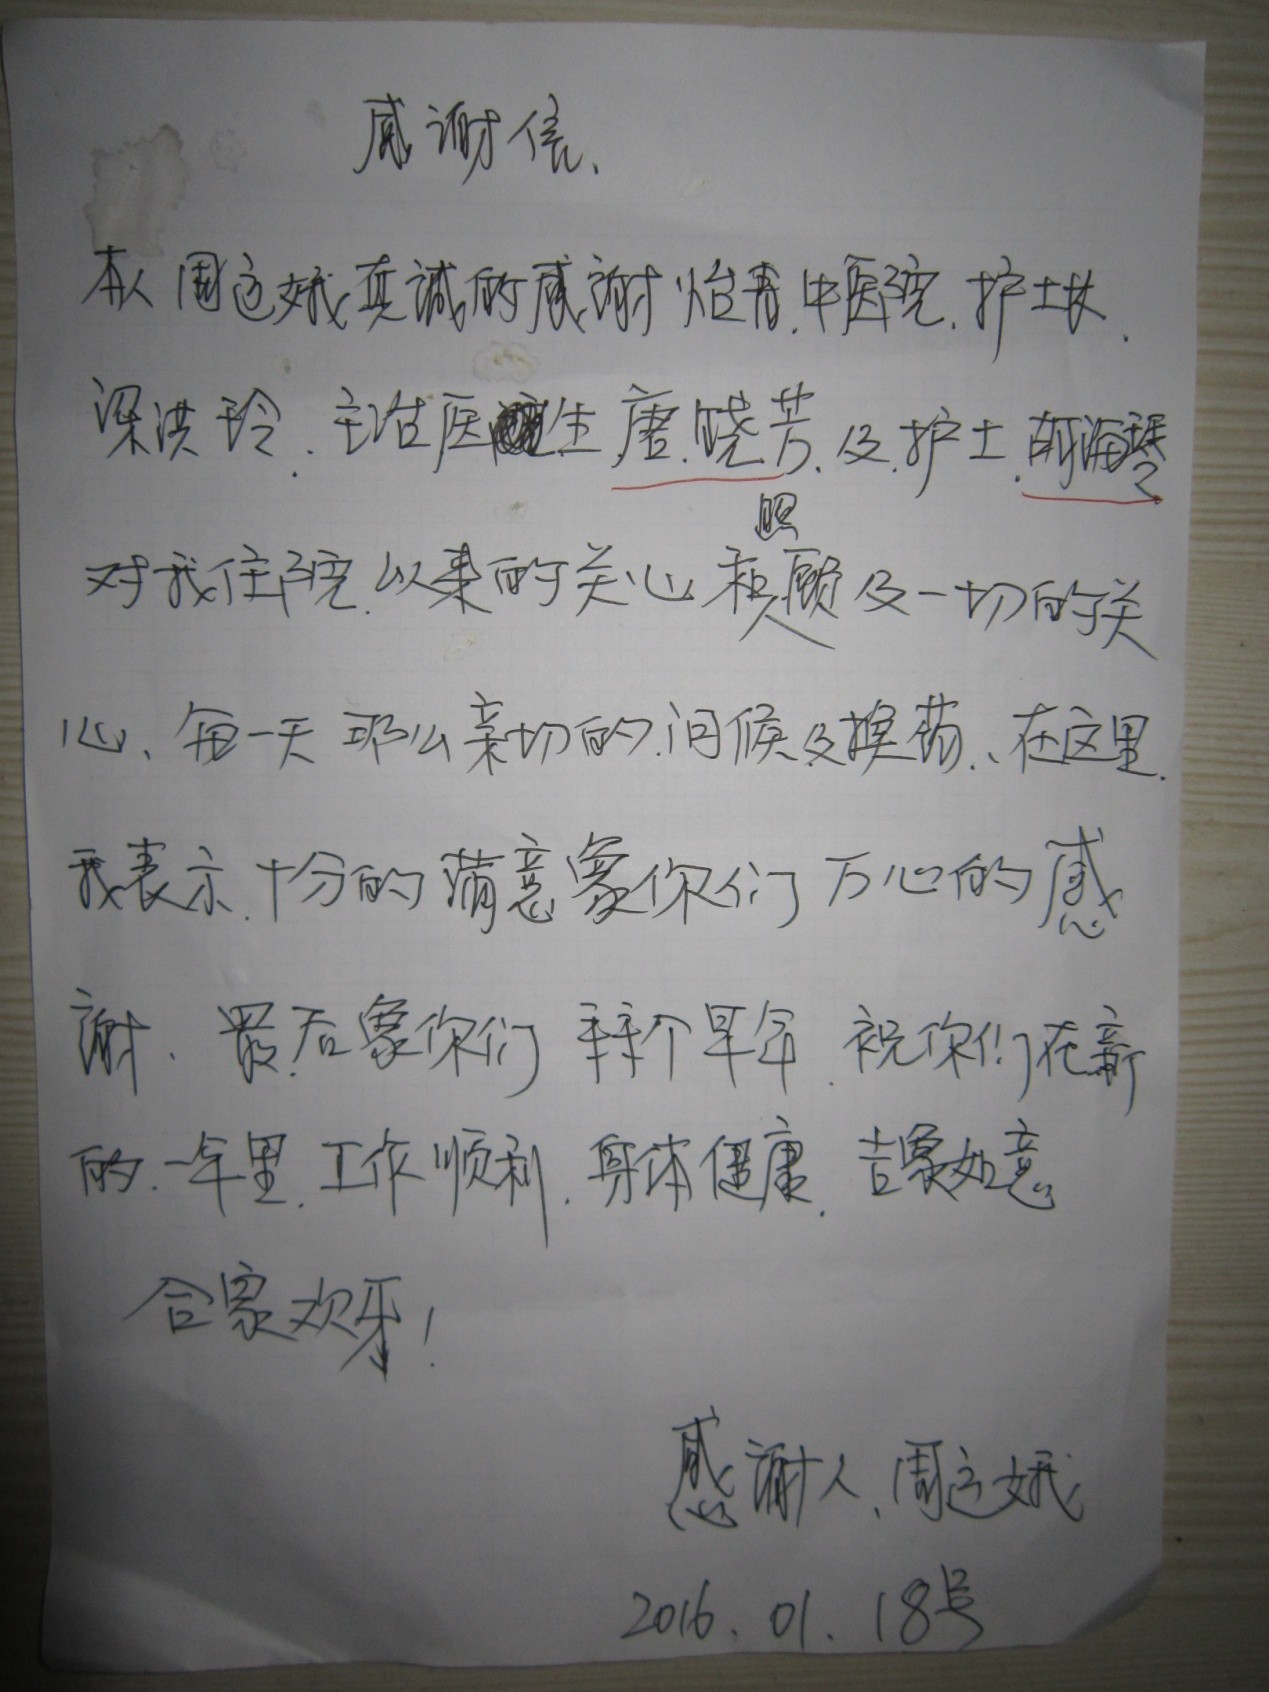 感谢信、
本人周运娥真诚的感谢怡青.中医院.护士长.
梁洪玲.主治医生唐.晓芳.及.护士.
对我住院.以来的关心和照顾及一切的关
心、每一天那么亲切的.问候及换药、在这里.
我表示.十分的满意象你们万心的感
谢、最后象你们拜个早年.祝你们在新
的.一年里.工作顺利.身体健康.吉象如意
合家欢牙！
感谢人、周运娥
2016.01.18号